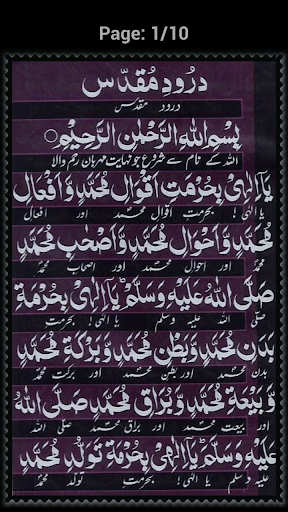 Page: 1/10
درود مُقدّس
درود مقدس
بِسْمِ اللهِ الرَّحْمٰنِ الرَّحِيْمِ
اللہ کے نام سے شروع جو نہایت مہربان رحم والا
يَآ اِلٰهِىْ بِحُرْمَتِ اَقْوَالِ مُحَمَّدٍ وَّ اَفْعَالِ
یا الٰہی! بحرمت اقوال محمد اور افعال
مُحَمَّدٍ وَّ اَحْوَالِ مُحَمَّدٍ وَّ اَصْحٰبِ مُحَمَّدٍ
محمد اور احوال محمد اور اصحاب محمد
صَلَّى اللهُ عَلَيْهِ وَسَلَّمْ يَآ اِلٰهِىْ بِحُرْمَةِ
صلی اللہ علیہ وسلم یا الٰہی! بحرمت
بَدَنِ مُحَمَّدٍ وَّ بَطْنِ مُحَمَّدٍ وَّ بَرَكَةِ مُحَمَّدٍ
بدن محمد اور بطن محمد اور برکت محمد
وَّ بَيْعَةِ مُحَمَّدٍ وَّ بُرَاقِ مُحَمَّدٍ صَلَّى اللهُ
اور بیعت محمد اور براق محمد صلی اللہ
عَلَيْهِ وَسَلَّمْ يَآ اِلٰهِىْ بِحُرْمَةِ تَوَلُّدِ مُحَمَّدٍ
علیہ وسلم یا الٰہی! بحرمت تولد محمد